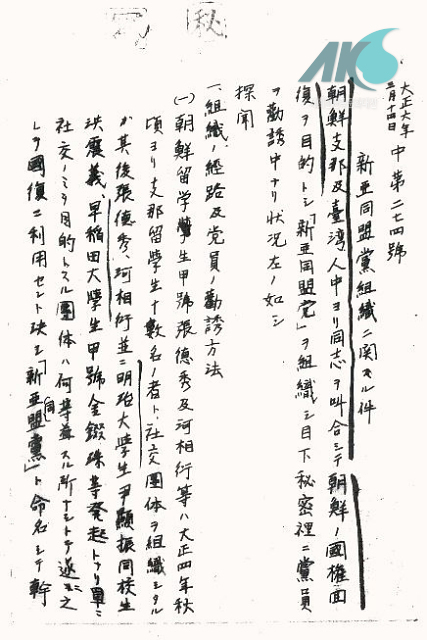 秘
AKS
大正六年
三月十四日
中第二七四號
新亜同盟党組織ニ関スル件
朝鮮支那及臺湾人中ヨリ同志ヲ叫合シテ朝鮮ノ國権回
復ヲ目的トシ「新亜同盟党」ヲ組織シ目下秘密裡ニ黨員
ヲ勧誘中ナリ状况左ノ如シ
探聞
一、組織ノ経路及党員ノ勧誘方法
(一)朝鮮留学生甲號張德秀及河相衍等ハ大正四年秋
頃ヨリ支那留學生十數名ノ者ト社交團体ヲ組織シタル
カ其後張德秀、河相衍並ニ明治大學生尹顯振同校生
洪震義、早稲田大學生甲號金錣洙等発起トナリ單ニ
社交ノミヲ目的トスル團体ハ何等益スル所ナシトテ遂ニ之
レヲ國復ニ利用セント决シ「新亜同盟黨」ト命名シテ幹